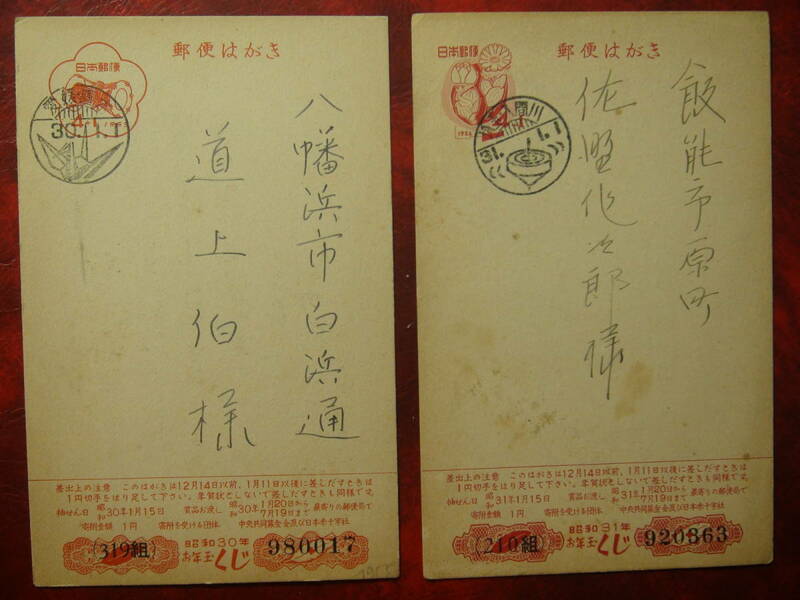 郵便はがき
日本郵便
4+1 1955
30.1.1
八幡浜市白浜通
道上伯様
差出上の注意 このはがきは12月14日以前、1月11日以後に差しだすときは
1円切手をはり足して下さい。年賀状としないで差しだすときも同様です。
抽せん日 昭和30年1月15日 賞品お渡し 昭和30年 1月20日から7月19日まで 最寄りの郵便局で
寄附金額 1円 寄附を受ける団体 中央共同募金会及び日本赤十字社
319組
昭和30年
お年玉くじ
980017
1955
郵便はがき
日本郵便
4+1
1956
間川
31.1.1
飯能市原町
佐野作次郎様
差出上の注意 このはがきは12月14日以前、1月11日以後に差しだすときは
1円切手をはり足して下さい。年賀状としないで差しだすときも同様です。
抽せん日 昭和31年1月15日 賞品お渡し 昭和31年 1月20日から7月19日まで 最寄りの郵便局で
寄附金額 1円 寄附を受ける団体 中央共同募金会及び日本赤十字社
210組
昭和31年
お年玉くじ
920863